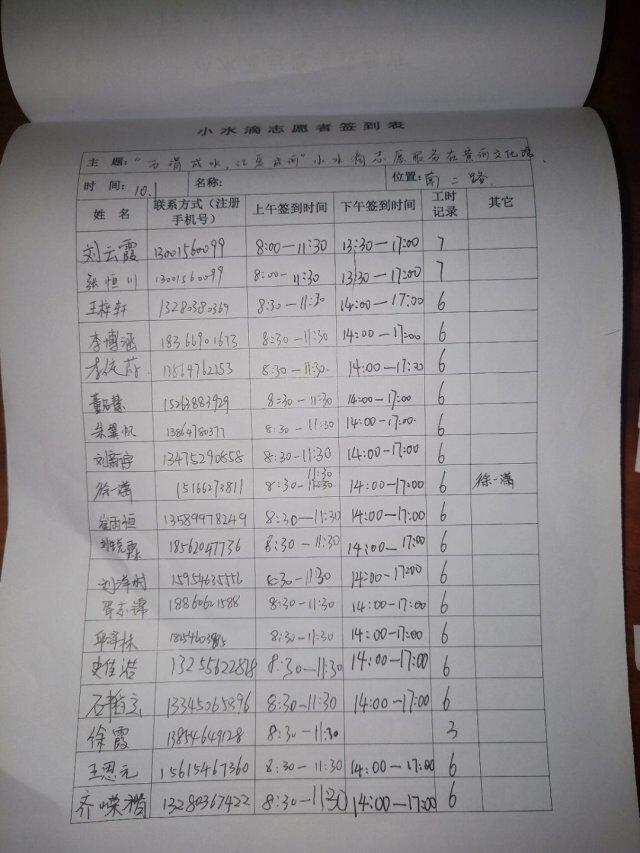 小水滴志愿者签到表
主 题: 小水滴志愿服务在黄河文化馆.
时 间: 10.1 名称: 位置: 南二路
姓 名 联系方式(注册手机号) 上午签到时间 下午签到时间 工时记录 其它
刘云霞 13001560099 8:00—11:30 13:30—17:00 7
张恒川 13001560099 8:00—11:30 13:30—17:00 7
王梓轩 13280380369 8:30—11:30 14:00—17:00 6
李博涵 18366901673 8:30—11:30 14:00—17:00 6
13564762153 8:30—11:30 14:00—17:00 6
15263883929 8:30—11:30 14:00—17:00 6
朱翼帆 13864780377 8:30—11:30 14:00—17:00 6
刘高宇 13475290558 8:30—11:30 14:00—17:00 6
徐一潇 15166273811 8:30—11:30 14:00—17:00 6 徐一潇
13589978249 8:30—11:30 14:00—17:00 6
18562047736 8:30—11:30 14:00—17:00 6
15954635556 8:30—11:30 14:00—17:00 6
18860621588 8:30—11:30 14:00—17:00 6
8:30—11:30 14:00—17:00 6
史佳浩 8:30—11:30 14:00—17:00 6
13345065396 8:30—11:30 14:00—17:00 6
徐霞 13854649128 8:30—11:30 3
王恩元 15615467360 8:30—11:30 14:00—17:00 6
13280367422 8:30—11:30 14:00—17:00 6